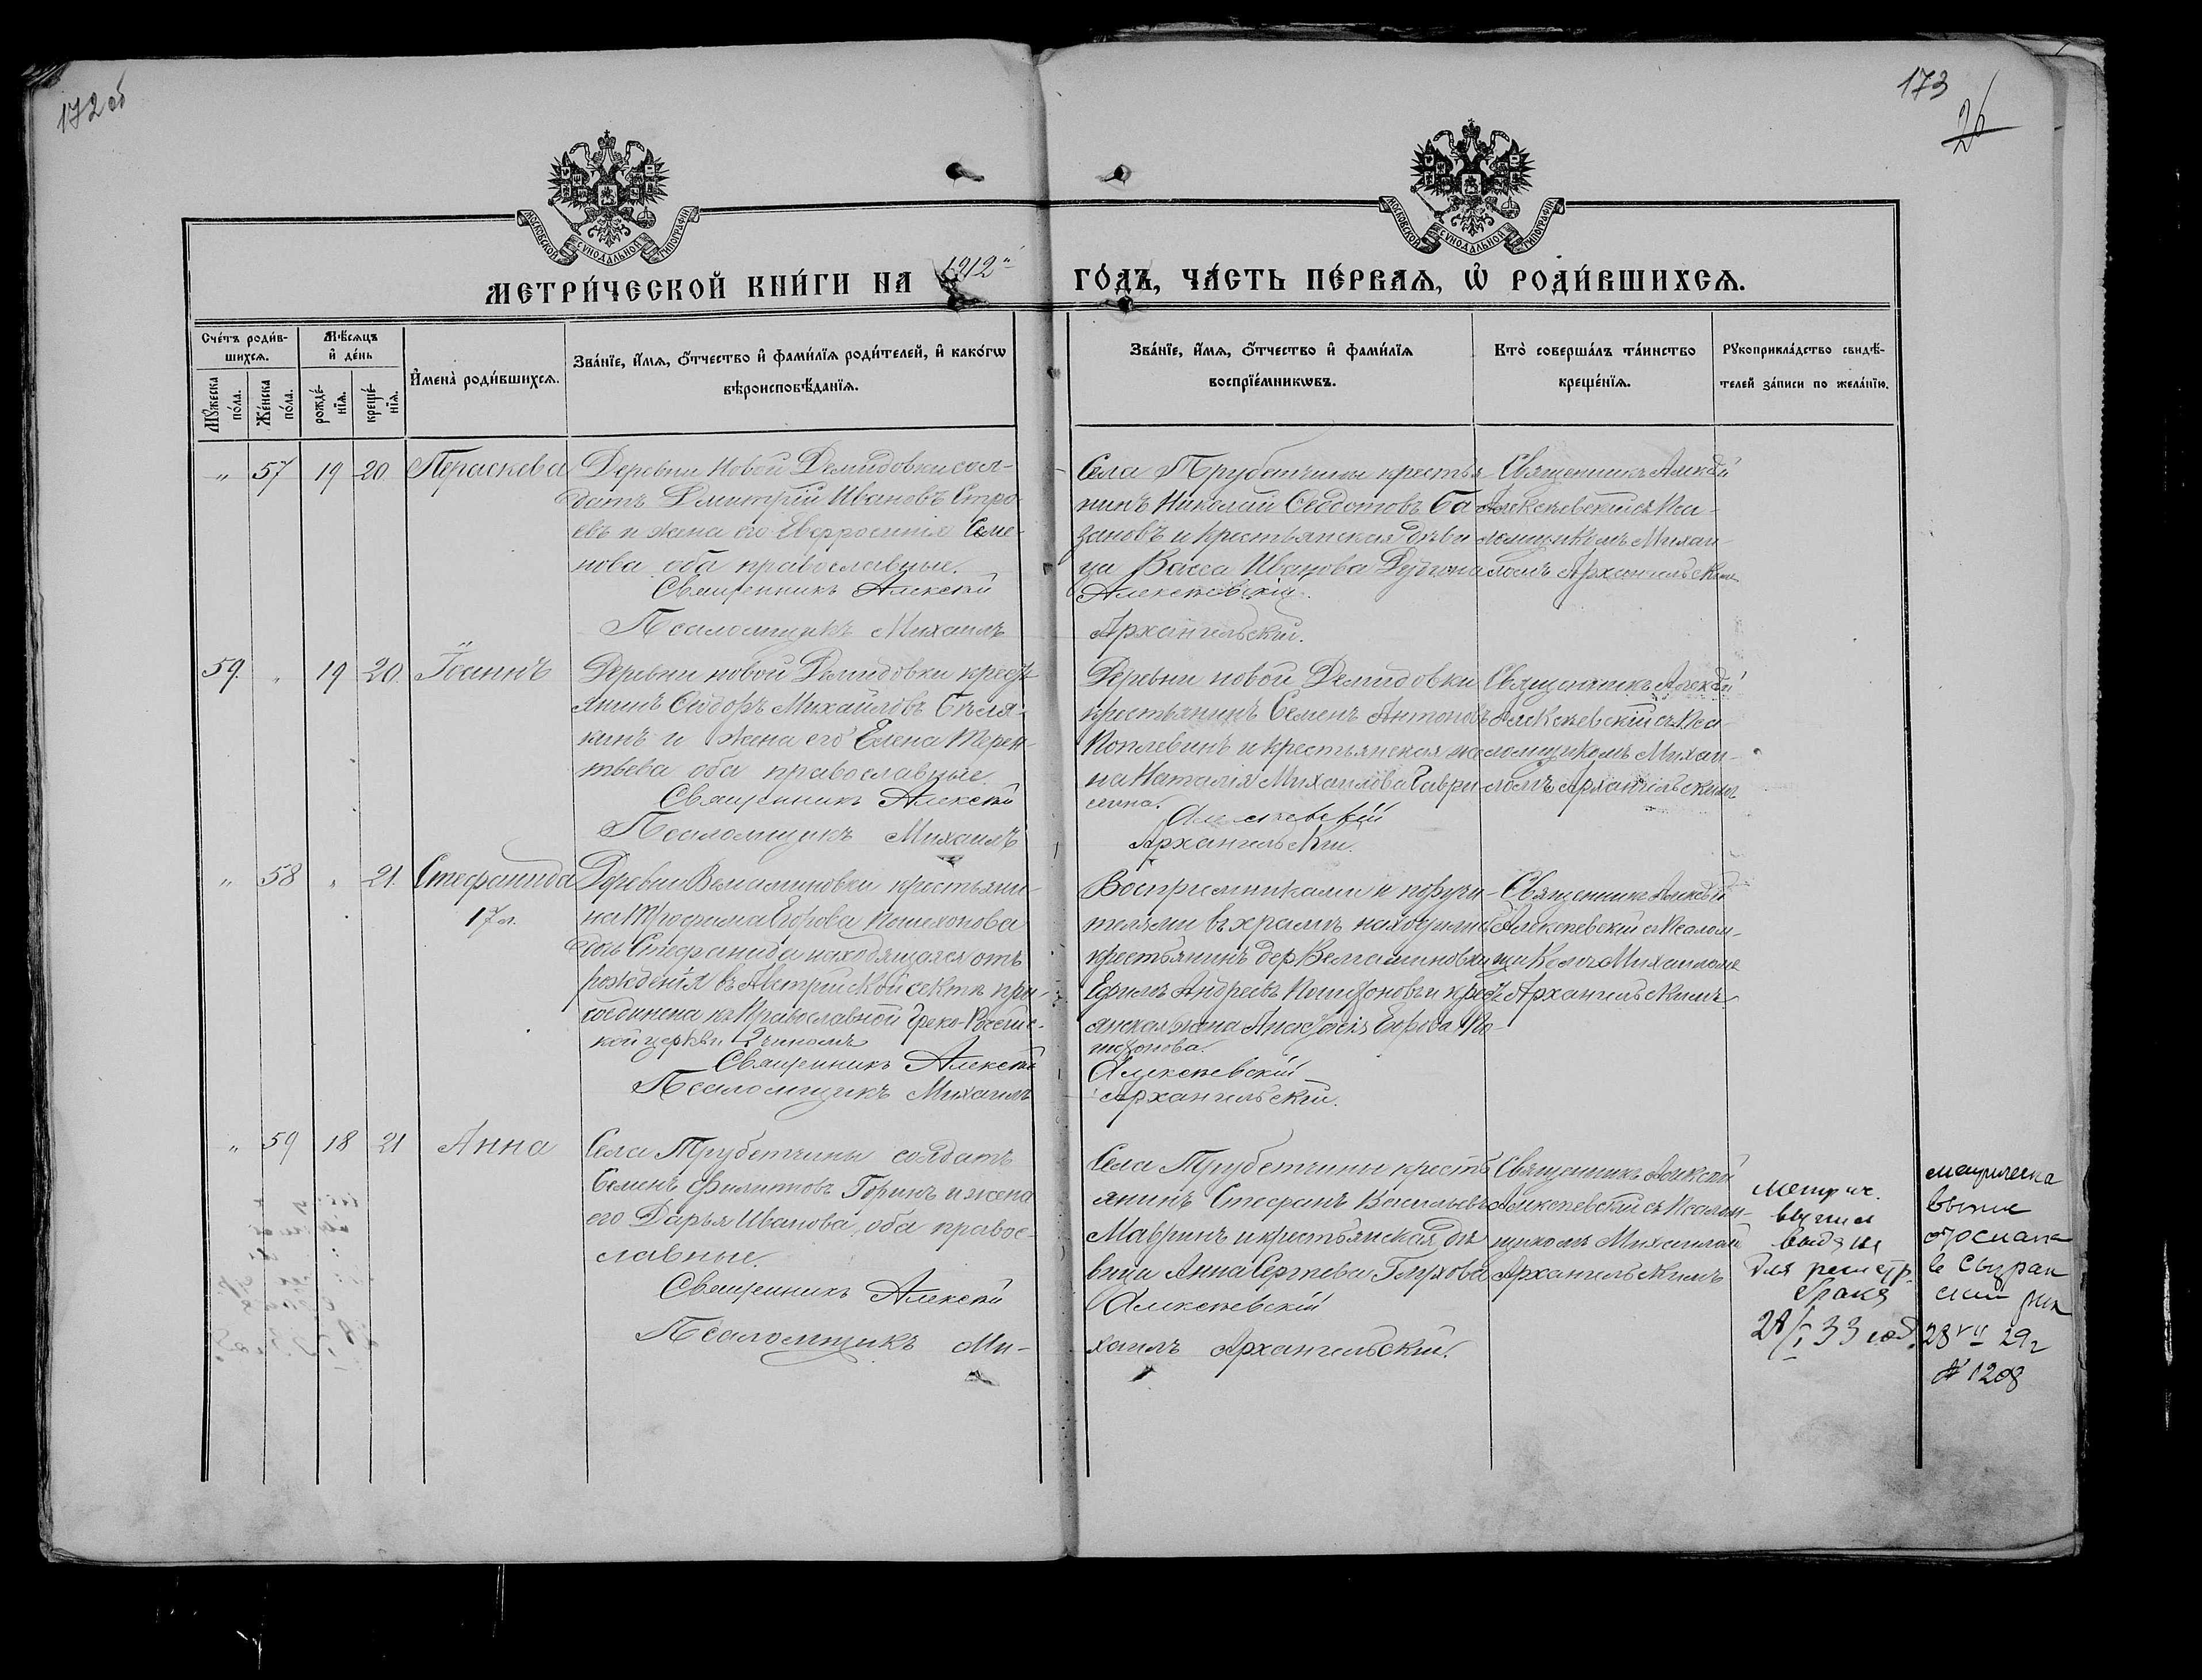 172 об
173
26
МОСКОВСКОЙ СУНОДАЛЬНОЙ ТИПОГРАФІИ
МОСКОВСКОЙ СУНОДАЛЬНОЙ ТИПОГРАФІИ
МЕТРИ́ЧЕСКОЙ КНИ́ГИ НА 1912 ГО́ДЪ, ЧА́СТЬ ПЕ́РВАѦ, Ѡ҆ РОДИ́ВШИХСѦ.
Сче́тъ роди́в-
шихсѧ.
Мѣ́сѧцъ
и҆ де́нь
Мꙋ́жеска по́ла.
Же́нска по́ла.
рожде́-
нїѧ.
креще́-
нїѧ.
И҆мена̀ роди́вшихсѧ.
Зва́нїе, и҆́мѧ, ѻ҆́тчество и҆ фами́лїѧ роди́телей, и҆ како́гѡ
вѣроисповѣ́данїѧ.
Зва́нїе, и҆́мѧ, ѻ҆́тчество и҆ фами́лїѧ
воспрїе́мникѡвъ.
Кто̀ соверша́лъ та́инство
креще́нїѧ.
Рꙋкоприкла́дство свидѣ́-
телей за́писи по жела́нїю.
" 57 19 20 Параскева
Деревни Новой Демидовки сол-
датъ Димитрій Ивановъ Стро-
евъ и жена его Евфросинія Семе-
нова оба православные.
Священникъ Алексѣй
Псаломщикъ Михаилъ
Села Трубетчины крестья-
нинъ Николай Ѳедотовъ Ба-
зановъ и крестьянская дѣви-
ца Васса Иванова
Алексѣевскій.
Архангельскій.
Священникъ Алексѣй
Алексѣевскій съ Пса-
ломщикомъ Михаи-
ломъ Архангельскимъ
59. " 19 20. Іоаннъ
Деревни новой Демидовки кресть
янинъ Сидоръ Михайловъ Бѣля-
кинъ и жена его Елена Терен-
тьева оба православные
Священникъ Алексѣй
Псаломщикъ Михаилъ
Деревни новой Демидовки
крестьянинъ Семенъ Антоновъ
и крестьянская же
на Наталія Михайлова Гаври
лина.
Алексѣевскій
Архангельскій.
Священникъ Алексѣй
Алексѣевскій съ Пса-
ломщикомъ Михаи-
ломъ Архангельскимъ
" 58 " 21. Стефанида
17 л.
Деревни Вельяминовки крестьяни-
на Трофима Егорова Пошехонова
дочь Стефанида находящаяся отъ
рожденія въ Австрійской сектѣ при-
соединена къ Православной Греко-Россійс-
кой церкви 2 чиномъ
Священникъ Алексѣй
Псаломщикъ Михаилъ
Воспріемниками и поручи-
телями въ храмѣ находились
крестьянинъ дер Вельяминовки
Ефимъ Андреевъ Пошехоновъ и крест
янская жена Анастасія Егорова По-
шехонова.
Алексѣевскій
Архангельскій.
Священникъ Алексѣй
Алексѣевскій съ Псалом-
щикомъ Михаиломъ
Архангельскимъ
" 59 18 21 Анна
Села Трубетчины солдатъ
Семенъ Филипповъ Горинъ и жена
его Дарья Иванова, оба правос-
лавные.
Священникъ Алексѣй
Псаломщикъ Ми-
Села Трубетчины кресть
янинъ Стефанъ Васильевъ
Мавринъ и крестьянская дѣ
вица Анна Сергѣева Глухова
Алексѣевскій
хаилъ Архангельскій.
Священникъ Алексѣй
Алексѣевскій съ Псалом-
щикомъ Михаиломъ
Архангельскимъ
метрич.
выпись
выдана
для регистр.
брака
28/I 33 год.
метрическа
выпис
отослана
в Сызран
ский рик
28 VII 29 г
№ 1208